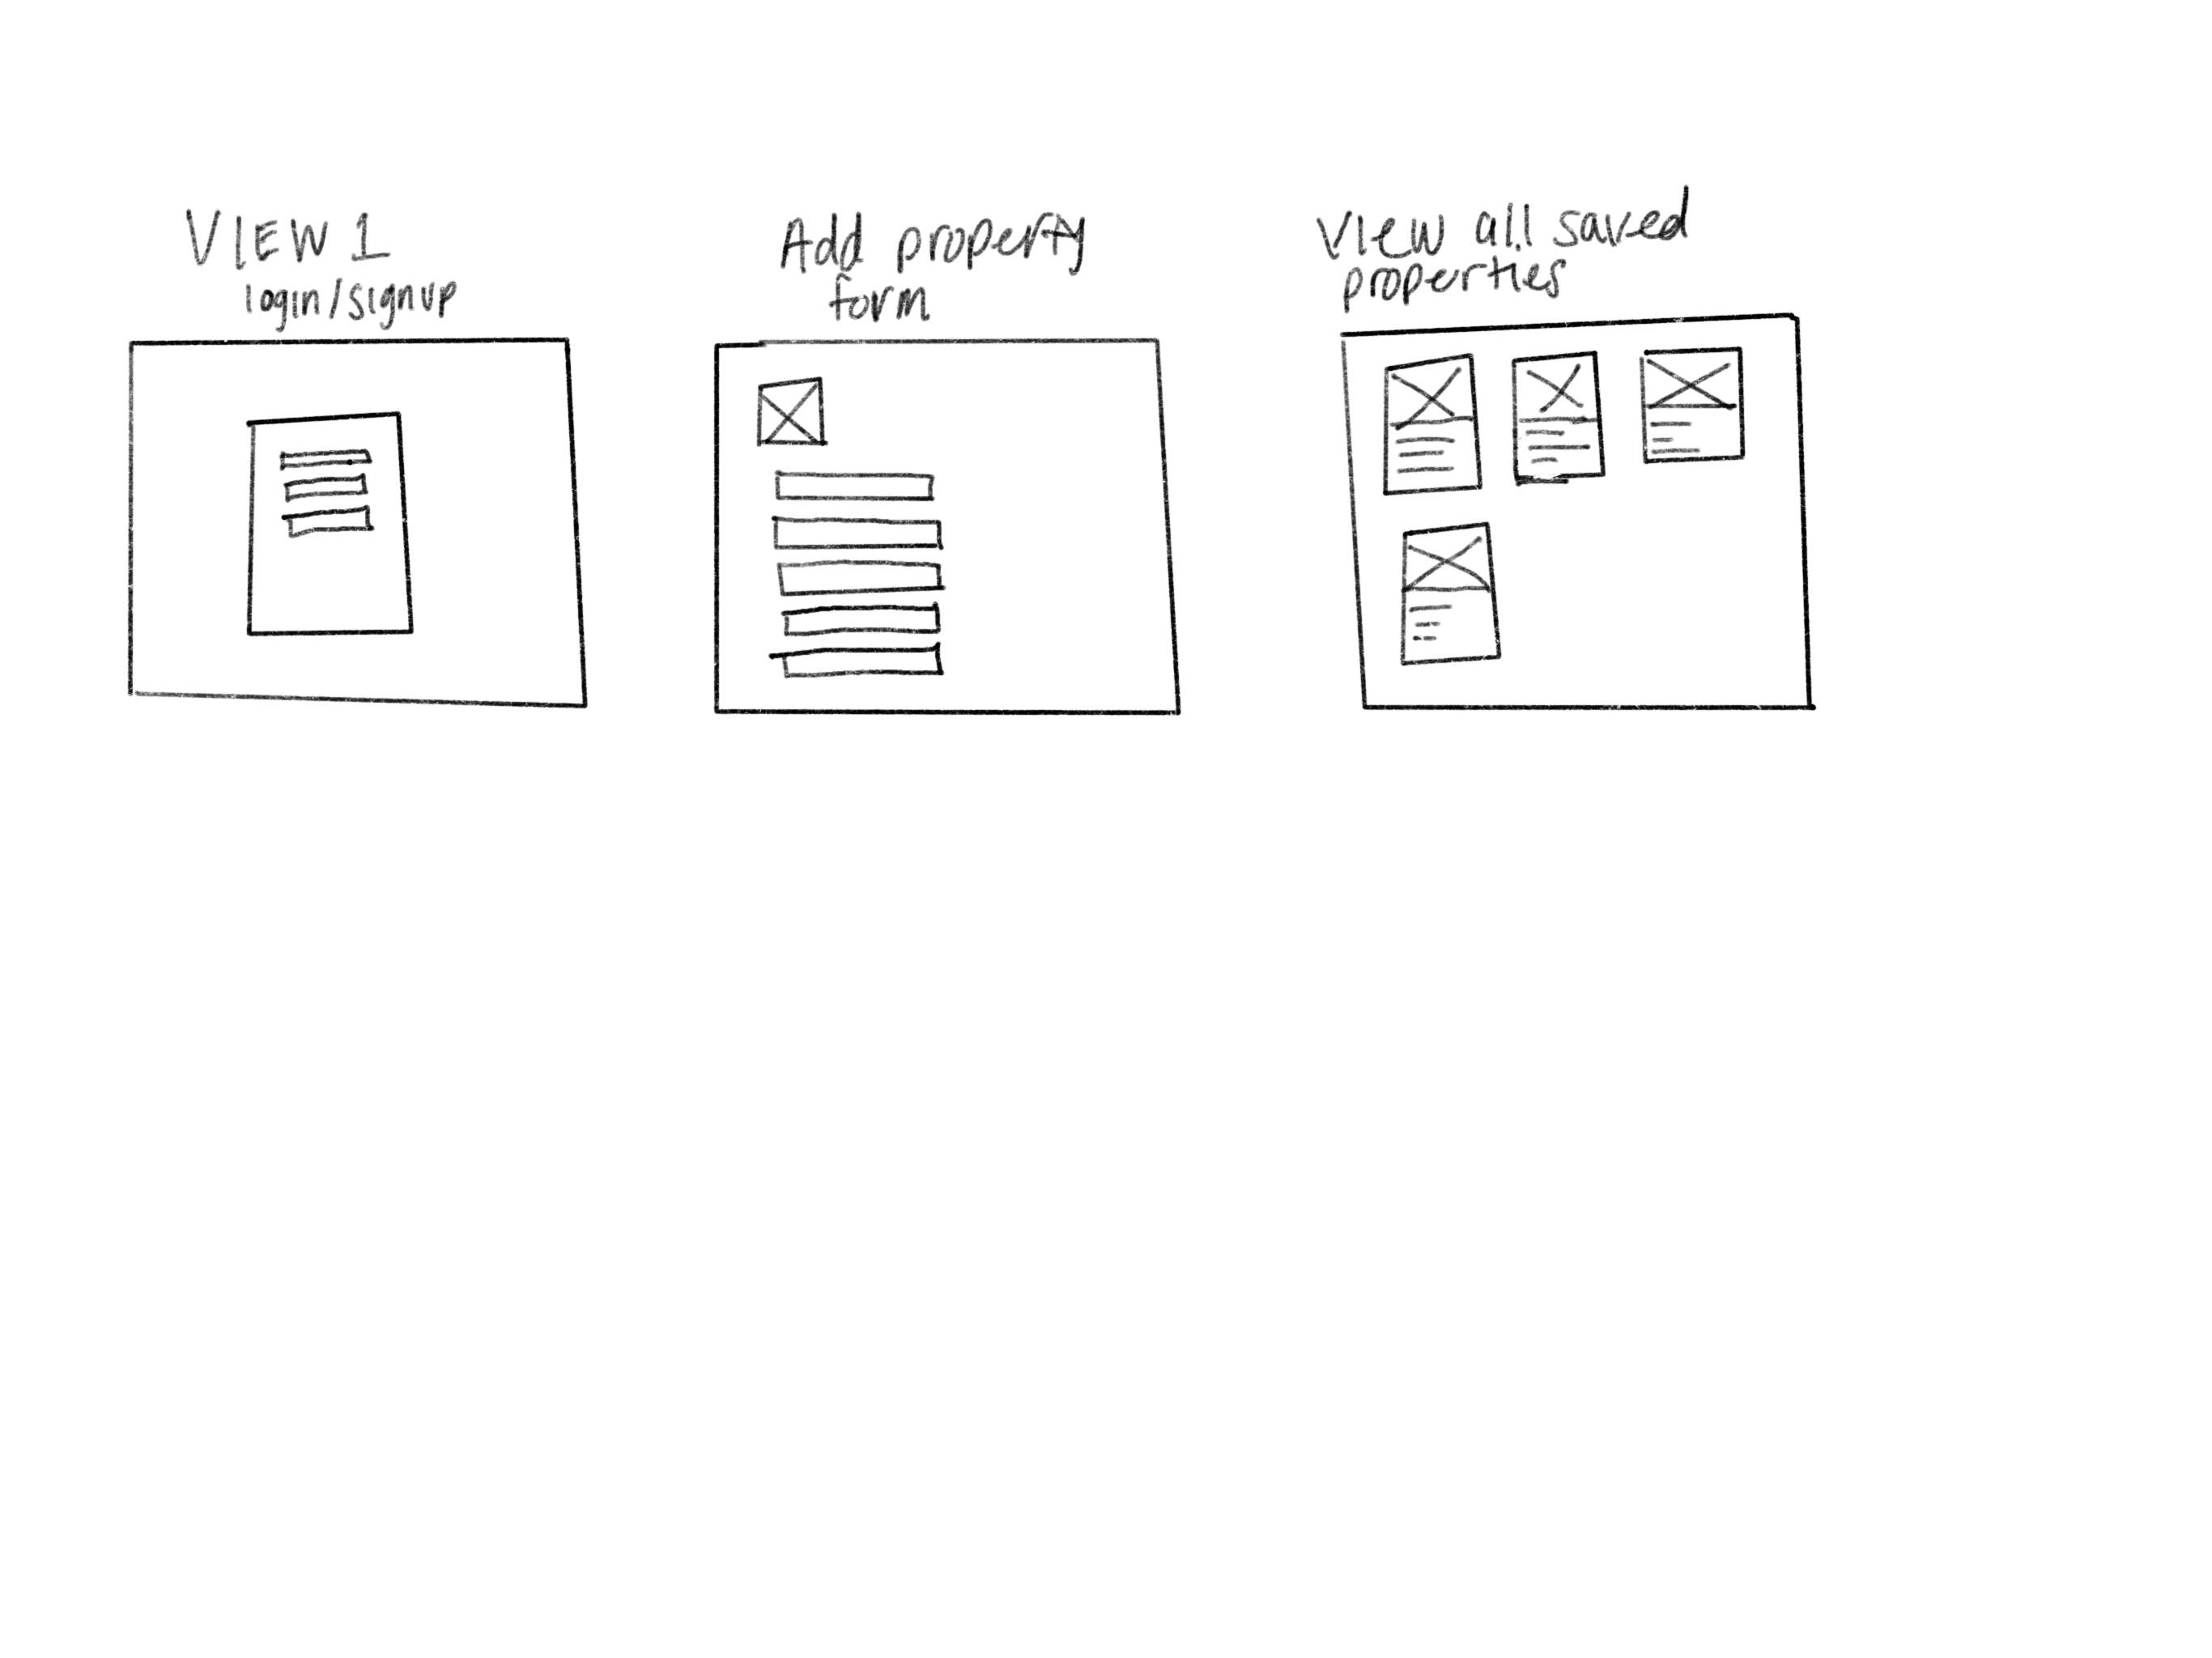 VIEW 1
login/signup
Add property
form
View all saved
properties